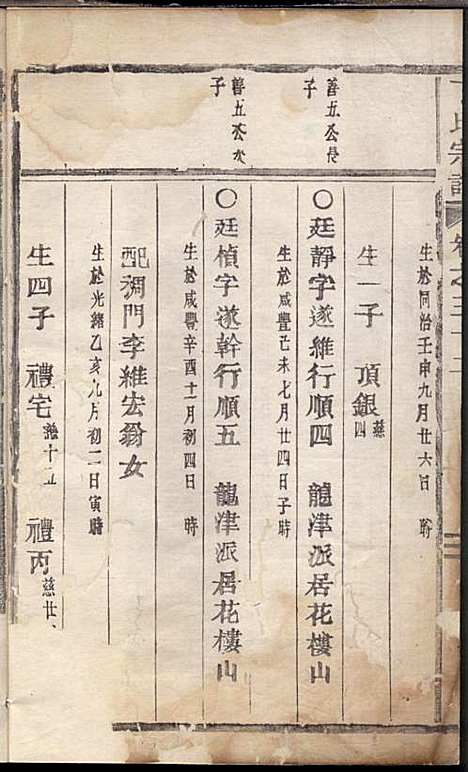 氏宗譜
卷之三十二
生於同治壬申九月廿六日 時
生一子 頂銀慈四
善五公長子
○廷靜字遂維行順四 龍津派居花樓山
生於咸豐己未七月廿四日子時
善五公次子
○廷楨字遂幹行順五 龍津派居花樓山
生於咸豐辛酉十一月初四日 時
配稠門李維宏翁女
生於光緒乙亥九月初二日寅時
生四子 禮宅慈十五 禮丙慈廿